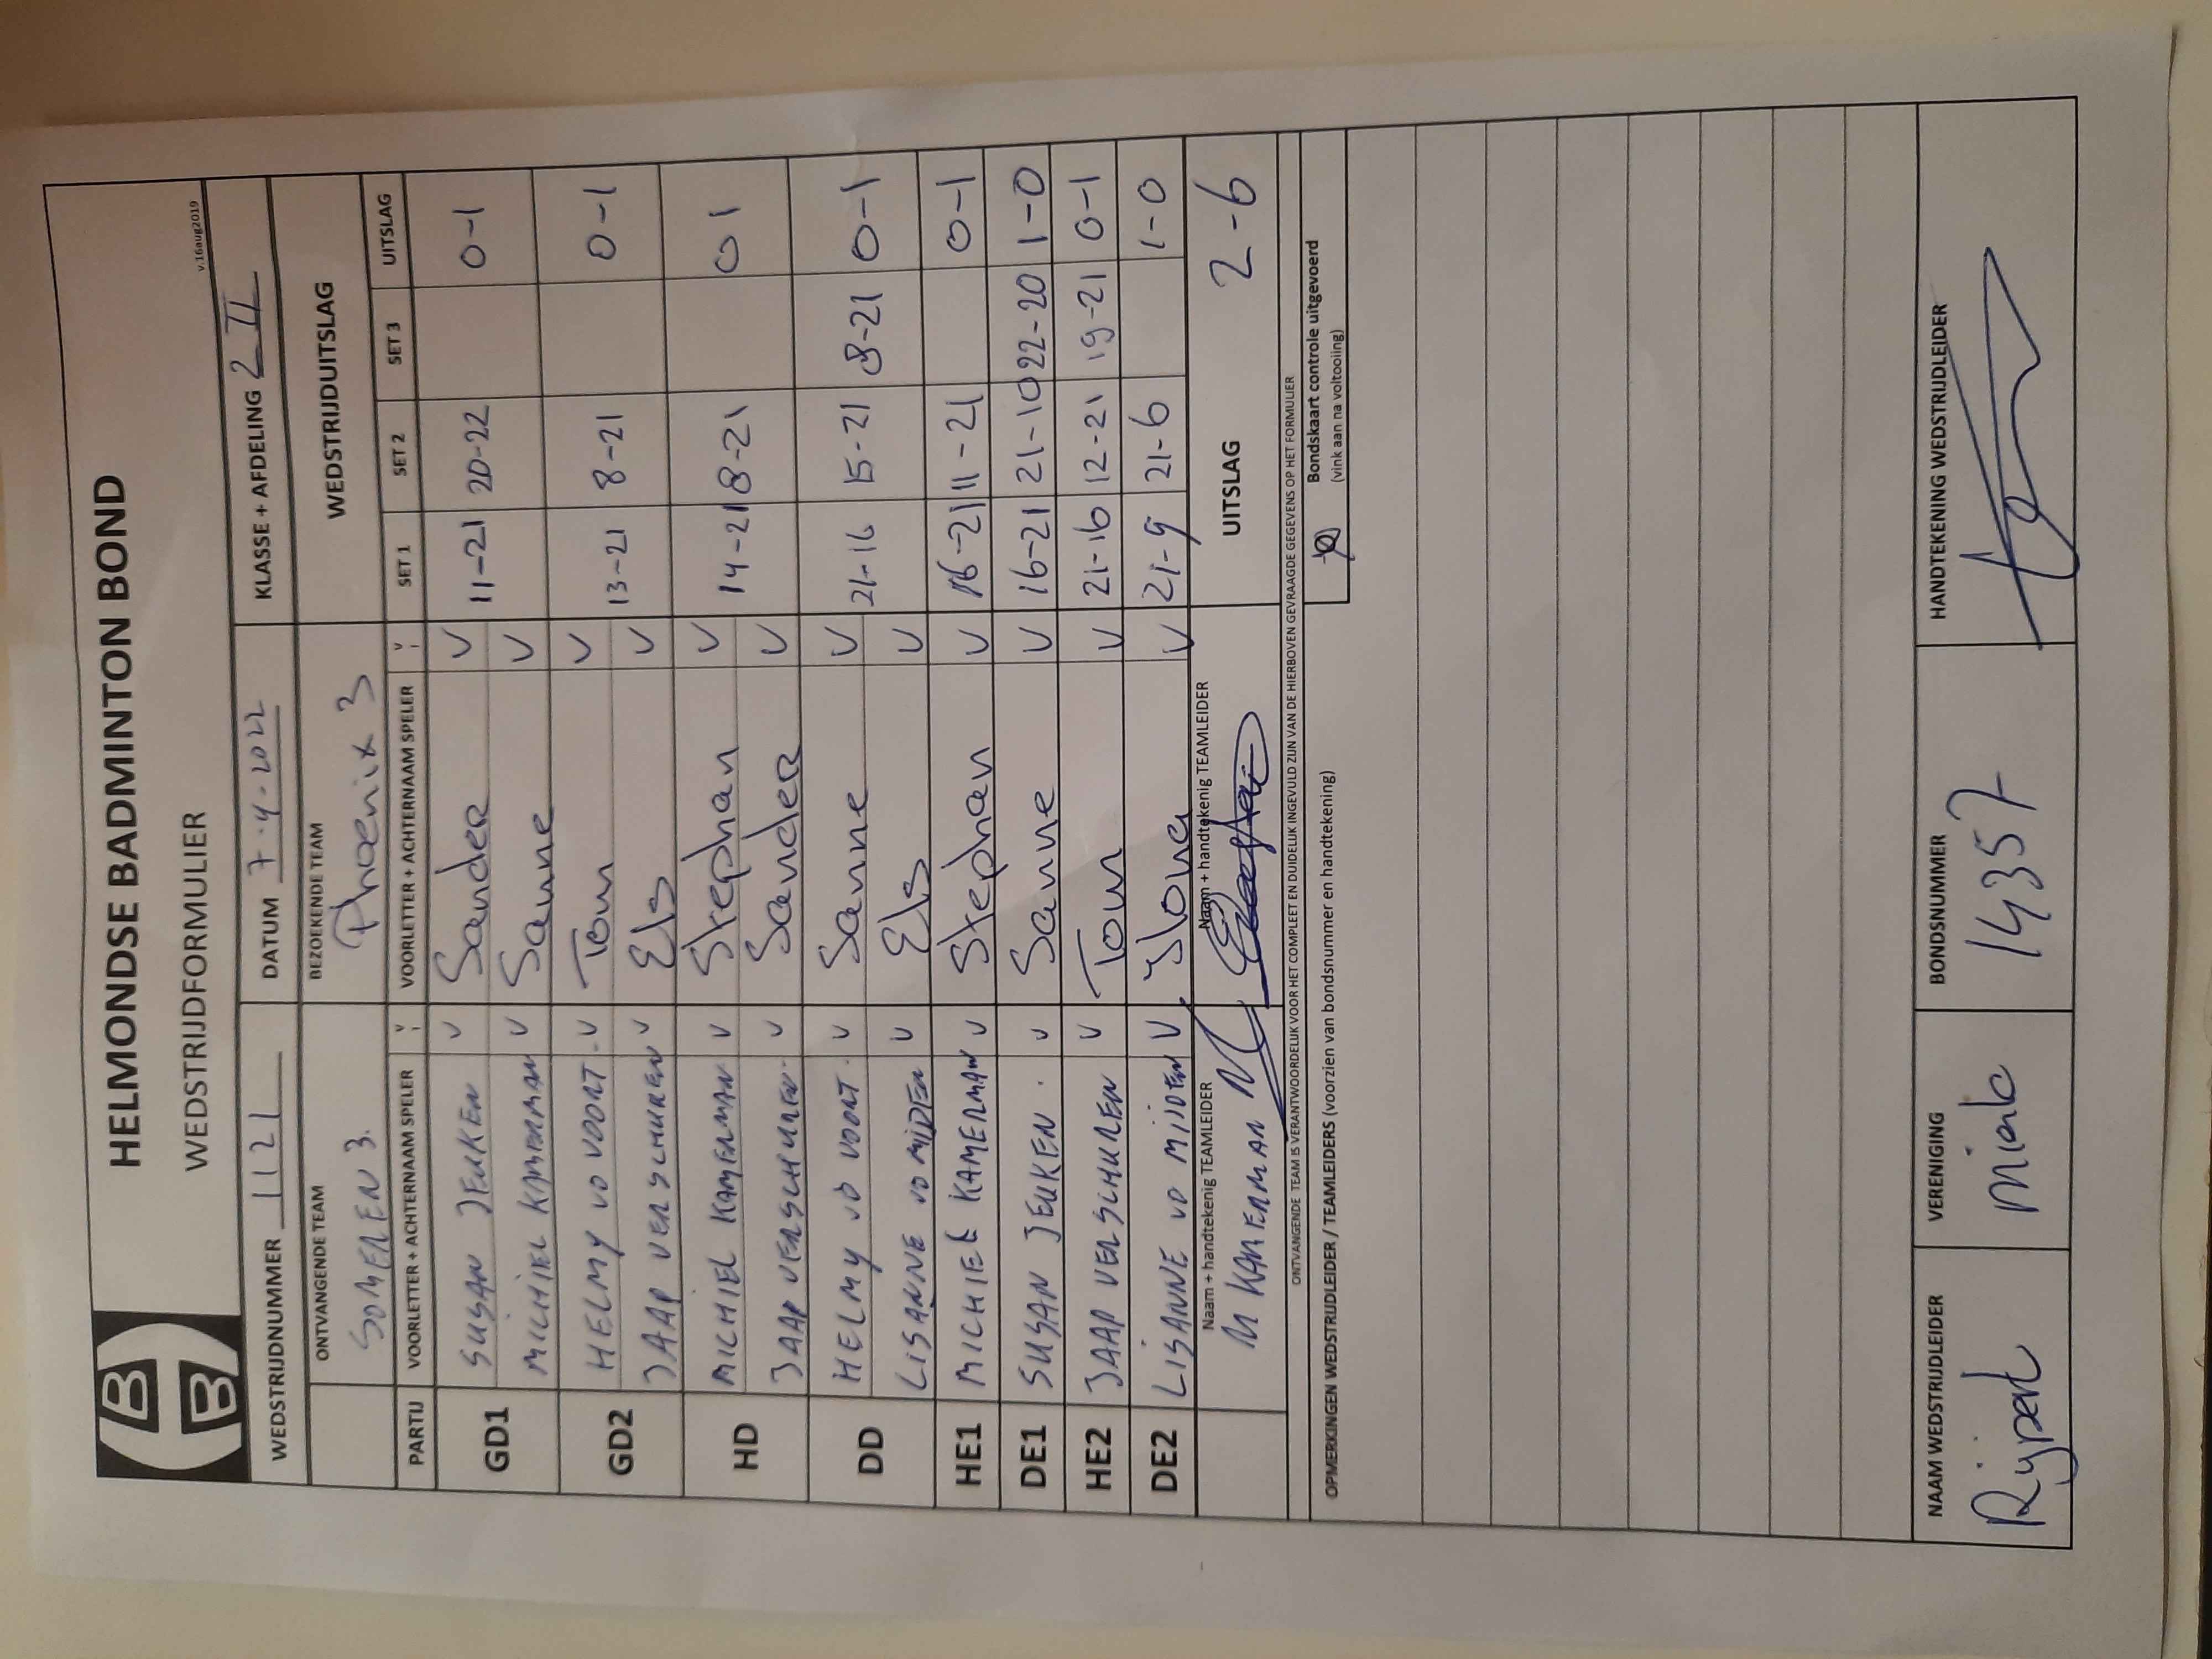 HELMONDSE BADMINTON BOND
WEDSTRIJDFORMULIER
v.16aug2019
WEDSTRIJDNUMMER 1121 DATUM 7-4-2022 KLASSE + AFDELING 2 II
ONTVANGENDE TEAM BEZOEKENDE TEAM WEDSTRIJDUITSLAG
SOMEREN 3. Phoenix 3
PARTIJ VOORLETTER + ACHTERNAAM SPELER v VOORLETTER + ACHTERNAAM SPELER v SET 1 SET 2 SET 3 UITSLAG
GD1 SUSAN JEUKEN V Sander V 11-21 20-22 0-1
MICHIEL KAMERMAN V Sanne V
GD2 HELMY VD VOORT V Tom V 13-21 8-21 0-1
JAAP VERSCHUREN V Els V
HD MICHIEL KAMERMAN V Stephan V 14-21 8-21 0 1
JAAP VERSCHUREN V Sander V
DD HELMY VD VOORT V Sanne V 21-16 15-21 8-21 0-1
LISANNE VD MIJDEN V Els V
HE1 MICHIEL KAMERMAN V Stephan V 16-21 11-21 0-1
DE1 SUSAN JEUKEN V Sanne V 16-21 21-10 22-20 1-0
HE2 JAAP VERSCHUREN V Tom V 21-16 12-21 19-21 0-1
DE2 LISANNE VD MIJDEN V Ilona V 21-9 21-6 1-0
Naam + handtekenig TEAMLEIDER Naam + handtekenig TEAMLEIDER UITSLAG 2-6
M KAMERMAN
ONTVANGENDE TEAM IS VERANTWOORDELIJK VOOR HET COMPLEET EN DUIDELIJK INGEVULD ZIJN VAN DE HIERBOVEN GEVRAAGDE GEGEVENS OP HET FORMULIER
OPMERKINGEN WEDSTRIJDLEIDER / TEAMLEIDERS (voorzien van bondsnummer en handtekening)
Bondskaart controle uitgevoerd
(vink aan na voltooiing)
NAAM WEDSTRIJDLEIDER VERENIGING BONDSNUMMER HANDTEKENING WEDSTRIJDLEIDER
Rijpert Mierlo 14357